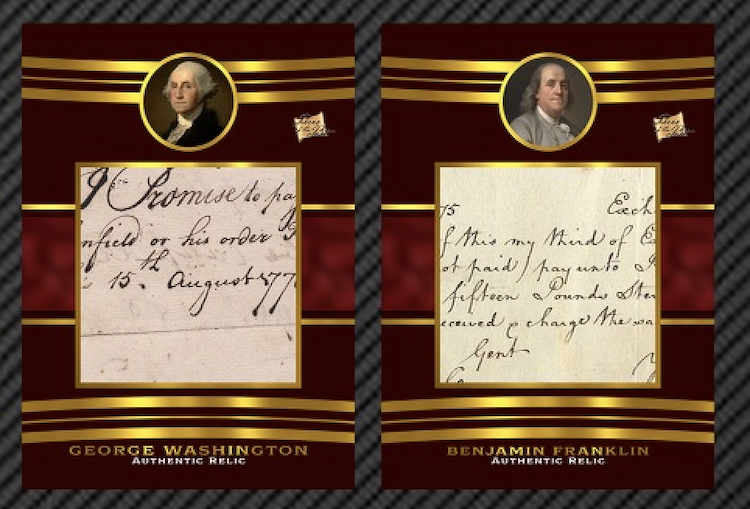 I Promise to pa
nfield or his order
15th August 177
GEORGE WASHINGTON
AUTHENTIC RELIC
75 Exch
f this my third of E
ot paid) pay unto
fifteen Pounds Ster
eceived & charge the sa
Gent
BENJAMIN FRANKLIN
AUTHENTIC RELIC